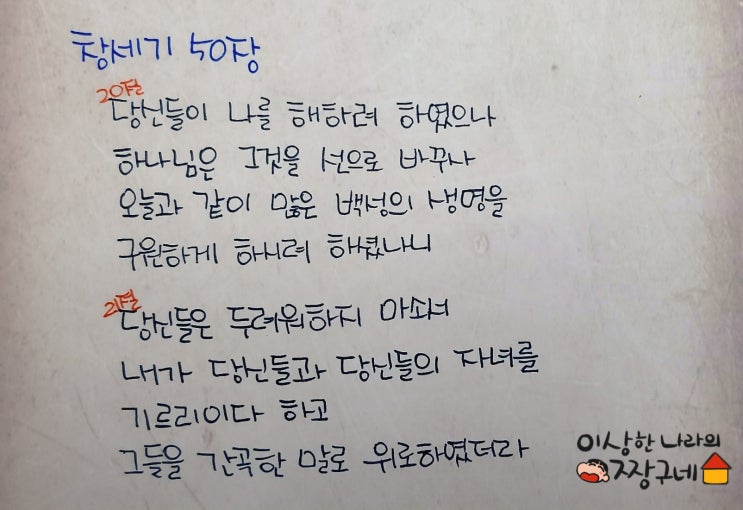 창세기 50장
20절
당신들이 나를 해하려 하였으나
하나님은 그것을 선으로 바꾸사
오늘과 같이 많은 백성의 생명을
구원하게 하시려 하셨나니
21절
당신들은 두려워하지 마소서
내가 당신들과 당신들의 자녀를
기르리이다 하고
그들을 간곡한 말로 위로하였더라
이상한 나라의
짱구네